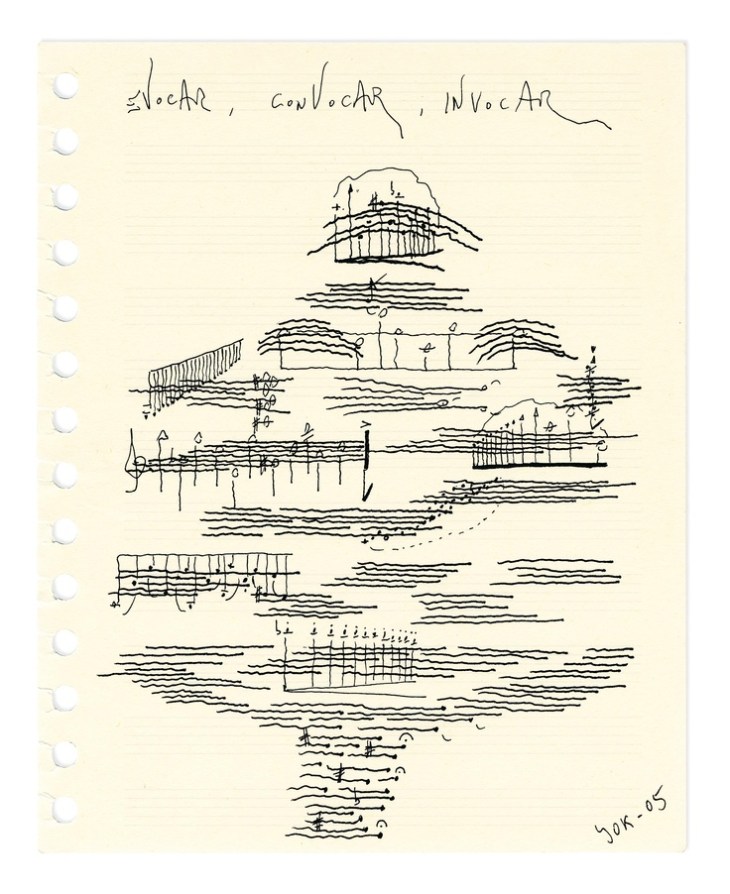 EVOCAR, CONVOCAR, INVOCAR
YOK-05